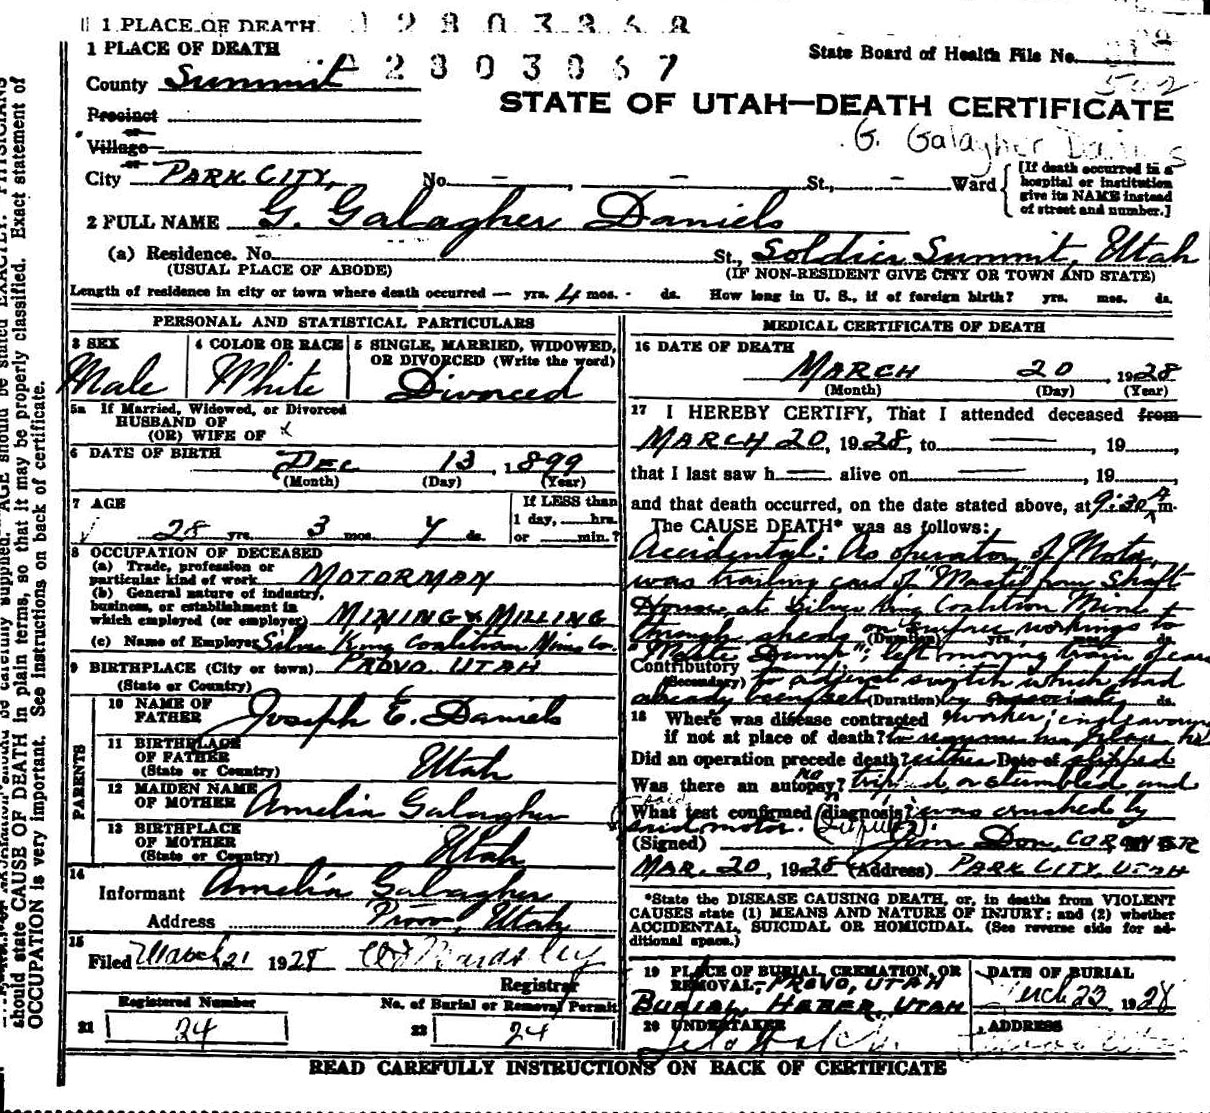 1 PLACE OF DEATH 12803868
1 PLACE OF DEATH 12803867
State Board of Health File No.
502
County Summit
STATE OF UTAH—DEATH CERTIFICATE
Precinct
G. Galagher Daniels
Village
or
City PARK CITY, No. — , — St., — Ward
[If death occurred in a
hospital or institution
give its NAME instead
of street and number.]
2 FULL NAME G. Galagher Daniels
(a) Residence. No. St., Soldier Summit, Utah
(USUAL PLACE OF ABODE) (IF NON-RESIDENT GIVE CITY OR TOWN AND STATE)
Length of residence in city or town where death occurred — yrs. 4 mos. - ds. How long in U. S., if of foreign birth? yrs. mos. ds.
PERSONAL AND STATISTICAL PARTICULARS
3 SEX 4 COLOR OR RACE 5 SINGLE, MARRIED, WIDOWED,
OR DIVORCED (Write the word)
Male White Divorced
5a If Married, Widowed, or Divorced
HUSBAND OF
(OR) WIFE OF x
6 DATE OF BIRTH
DEC 13, 1899
(Month) (Day) (Year)
7 AGE If LESS than
1 day, hrs.
28 yrs. 3 mos. 7 ds. or min.?
8 OCCUPATION OF DECEASED
(a) Trade, profession or
particular kind of work MOTORMAN
(b) General nature of industry,
business, or establishment in
which employed (or employer) MINING & MILLING
(c) Name of Employer Silver King Coalition Mines Co.
9 BIRTHPLACE (City or town) PROVO, UTAH
(State or Country)
PARENTS
10 NAME OF
FATHER Joseph E. Daniels
11 BIRTHPLACE
OF FATHER
(State or Country) Utah
12 MAIDEN NAME
OF MOTHER Amelia Galagher
13 BIRTHPLACE
OF MOTHER
(State or Country) Utah
14
Informant Amelia Galagher
Address Provo, Utah
15
Filed March 21 1928
Registrar
Registered Number No. of Burial or Removal Permit
21 24 22 24
MEDICAL CERTIFICATE OF DEATH
16 DATE OF DEATH
MARCH 20, 1928
(Month) (Day) (Year)
17 I HEREBY CERTIFY, That I attended deceased from
MARCH 20, 1928, to , 19
that I last saw h alive on , 19
and that death occurred, on the date stated above, at 9:30 A m.
The CAUSE DEATH* was as follows:
Accidental: As operator of Motor,
was trailing cars of "Waste" from Shaft
House, at Silver King Coalition Mine to
through sheds on surface workings to
(Duration) yrs. mos. ds.
"Waste Dump"; left moving train of cars
Contributory
(Secondary) to adjust switch which had
already being set (Duration) by associate
18 Where was disease contracted worker; endeavoring
if not at place of death? to resume his place he
Did an operation precede death? either Date of slipped
Was there an autopsy? no tripped or stumbled, and
What test confirmed diagnosis? was crushed by
said motor.
(Signed) Jim Don, CORONER
MAR. 20, 1928 (Address) PARK CITY, UTAH
*State the DISEASE CAUSING DEATH, or, in deaths from VIOLENT
CAUSES state (1) MEANS AND NATURE OF INJURY; and (2) whether
ACCIDENTAL, SUICIDAL OR HOMICIDAL. (See reverse side for ad-
ditional space.)
19 PLACE OF BURIAL, CREMATION, OR
REMOVAL, PROVO, UTAH
BURIAL, HEBER, UTAH
DATE OF BURIAL
March 23 1928
20 UNDERTAKER ADDRESS
READ CAREFULLY INSTRUCTIONS ON BACK OF CERTIFICATE
should state CAUSE OF DEATH in plain terms, so that it may be properly classified. Exact statement of
OCCUPATION is very important. See instructions on back of certificate.